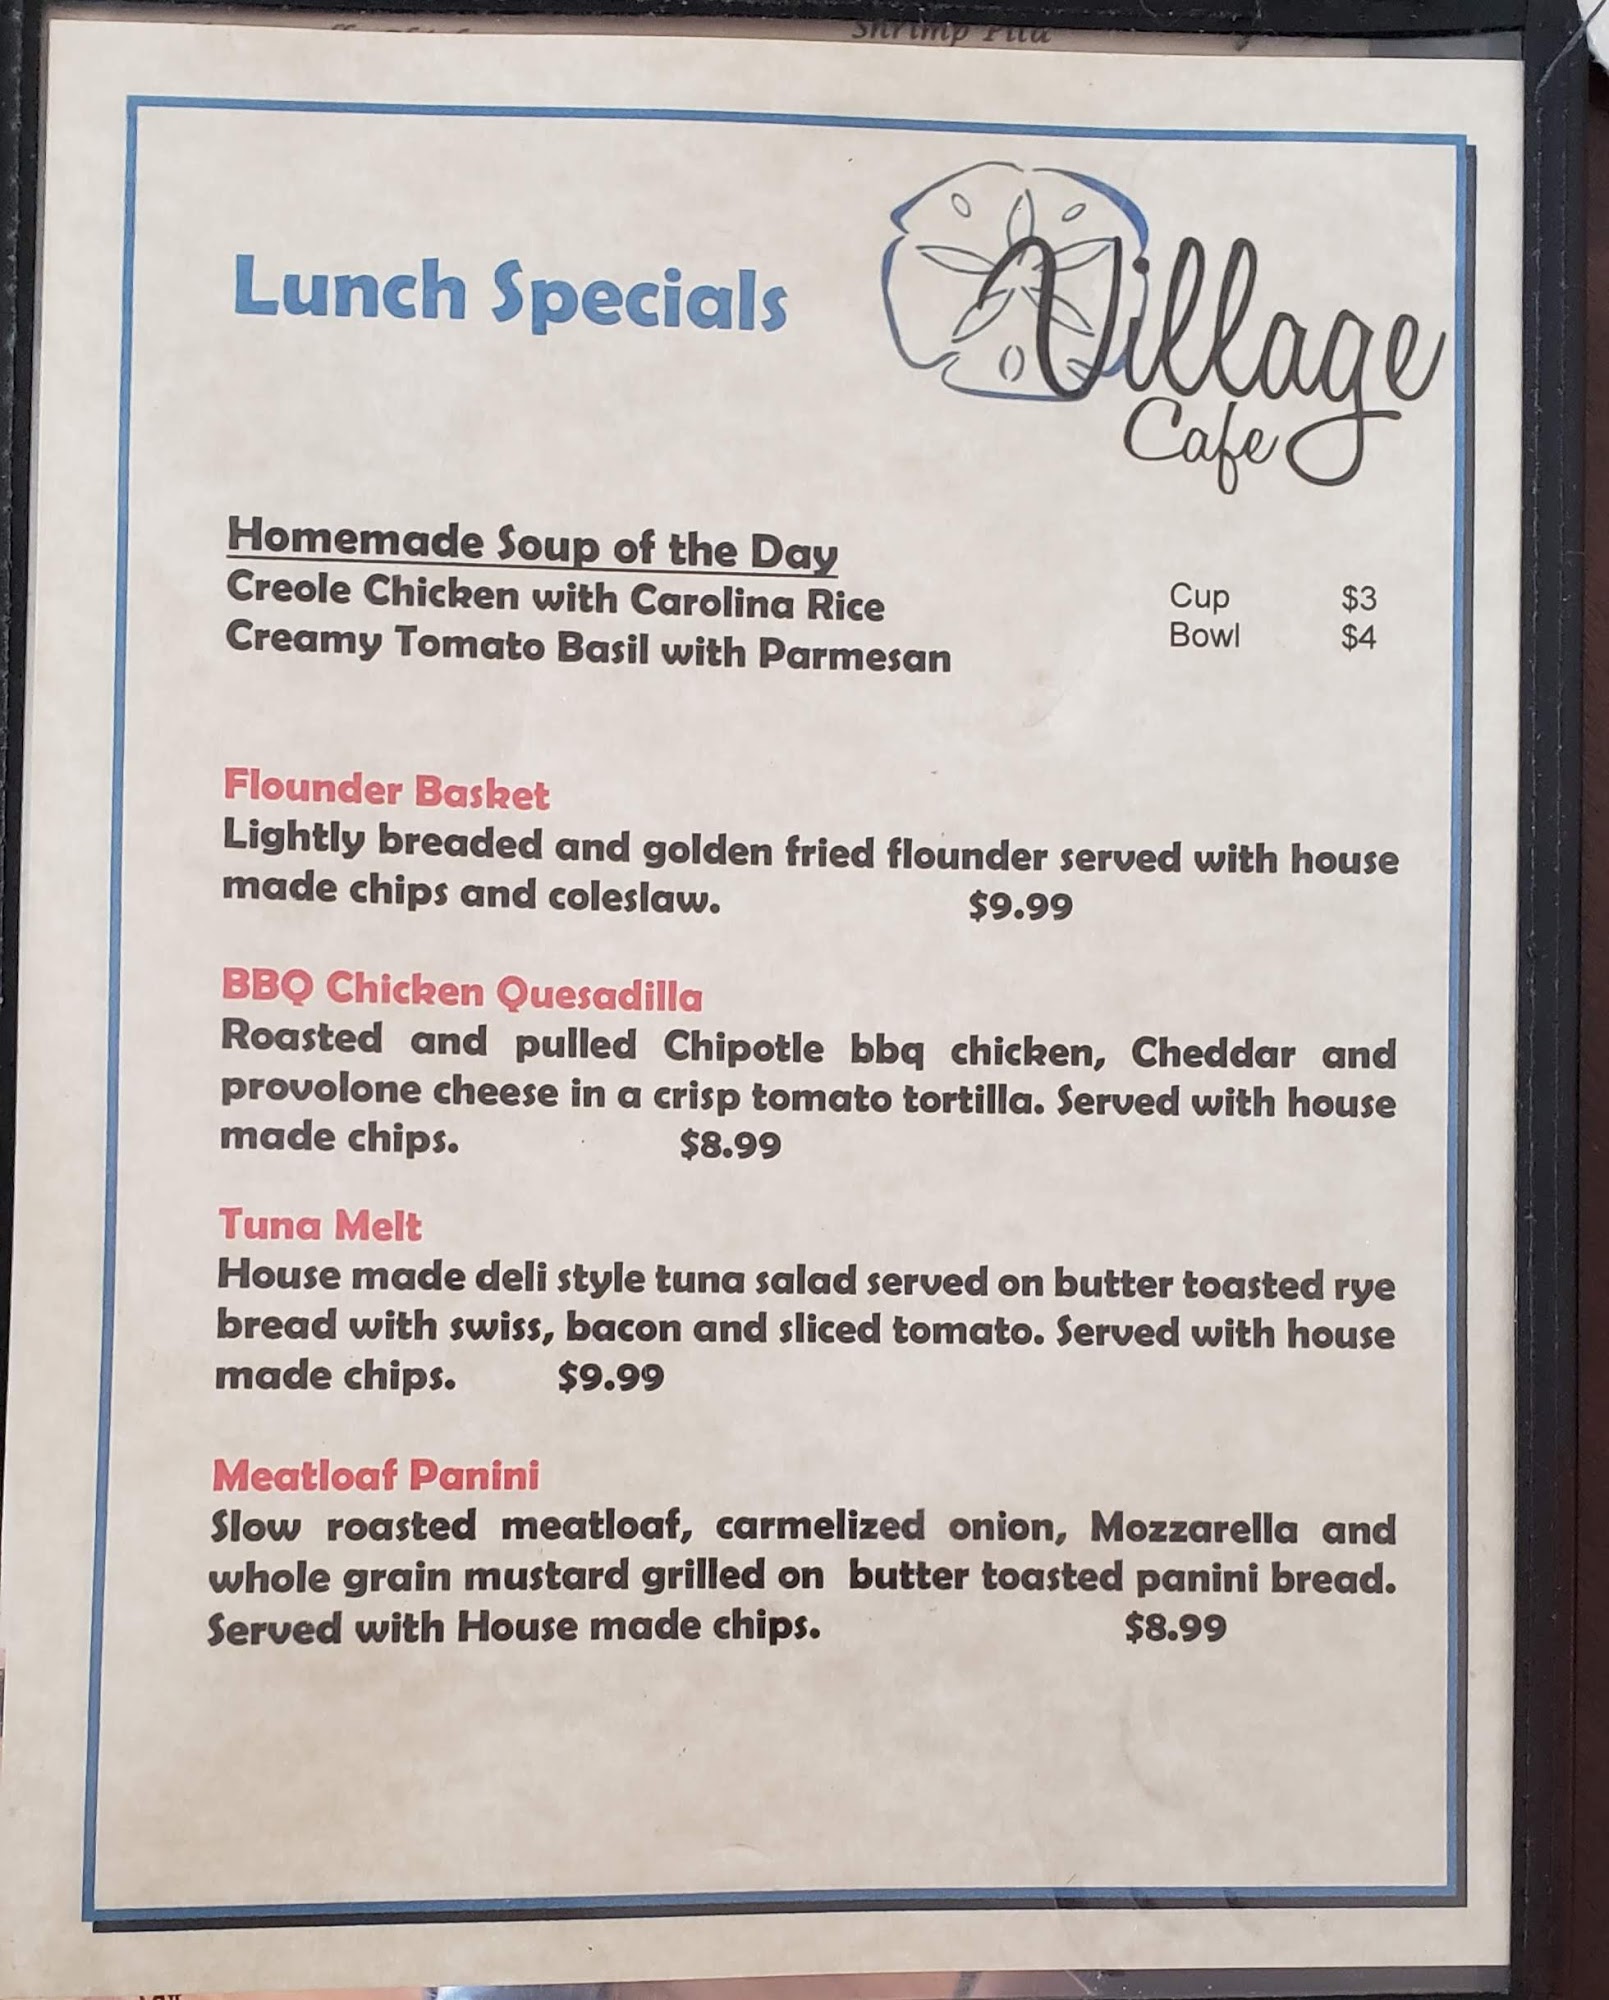 Shrimp Pita
Lunch Specials
Village
Cafe
Homemade Soup of the Day
Creole Chicken with Carolina Rice
Creamy Tomato Basil with Parmesan
Cup $3
Bowl $4
Flounder Basket
Lightly breaded and golden fried flounder served with house
made chips and coleslaw. $9.99
BBQ Chicken Quesadilla
Roasted and pulled Chipotle bbq chicken, Cheddar and
provolone cheese in a crisp tomato tortilla. Served with house
made chips. $8.99
Tuna Melt
House made deli style tuna salad served on butter toasted rye
bread with swiss, bacon and sliced tomato. Served with house
made chips. $9.99
Meatloaf Panini
Slow roasted meatloaf, carmelized onion, Mozzarella and
whole grain mustard grilled on butter toasted panini bread.
Served with House made chips. $8.99